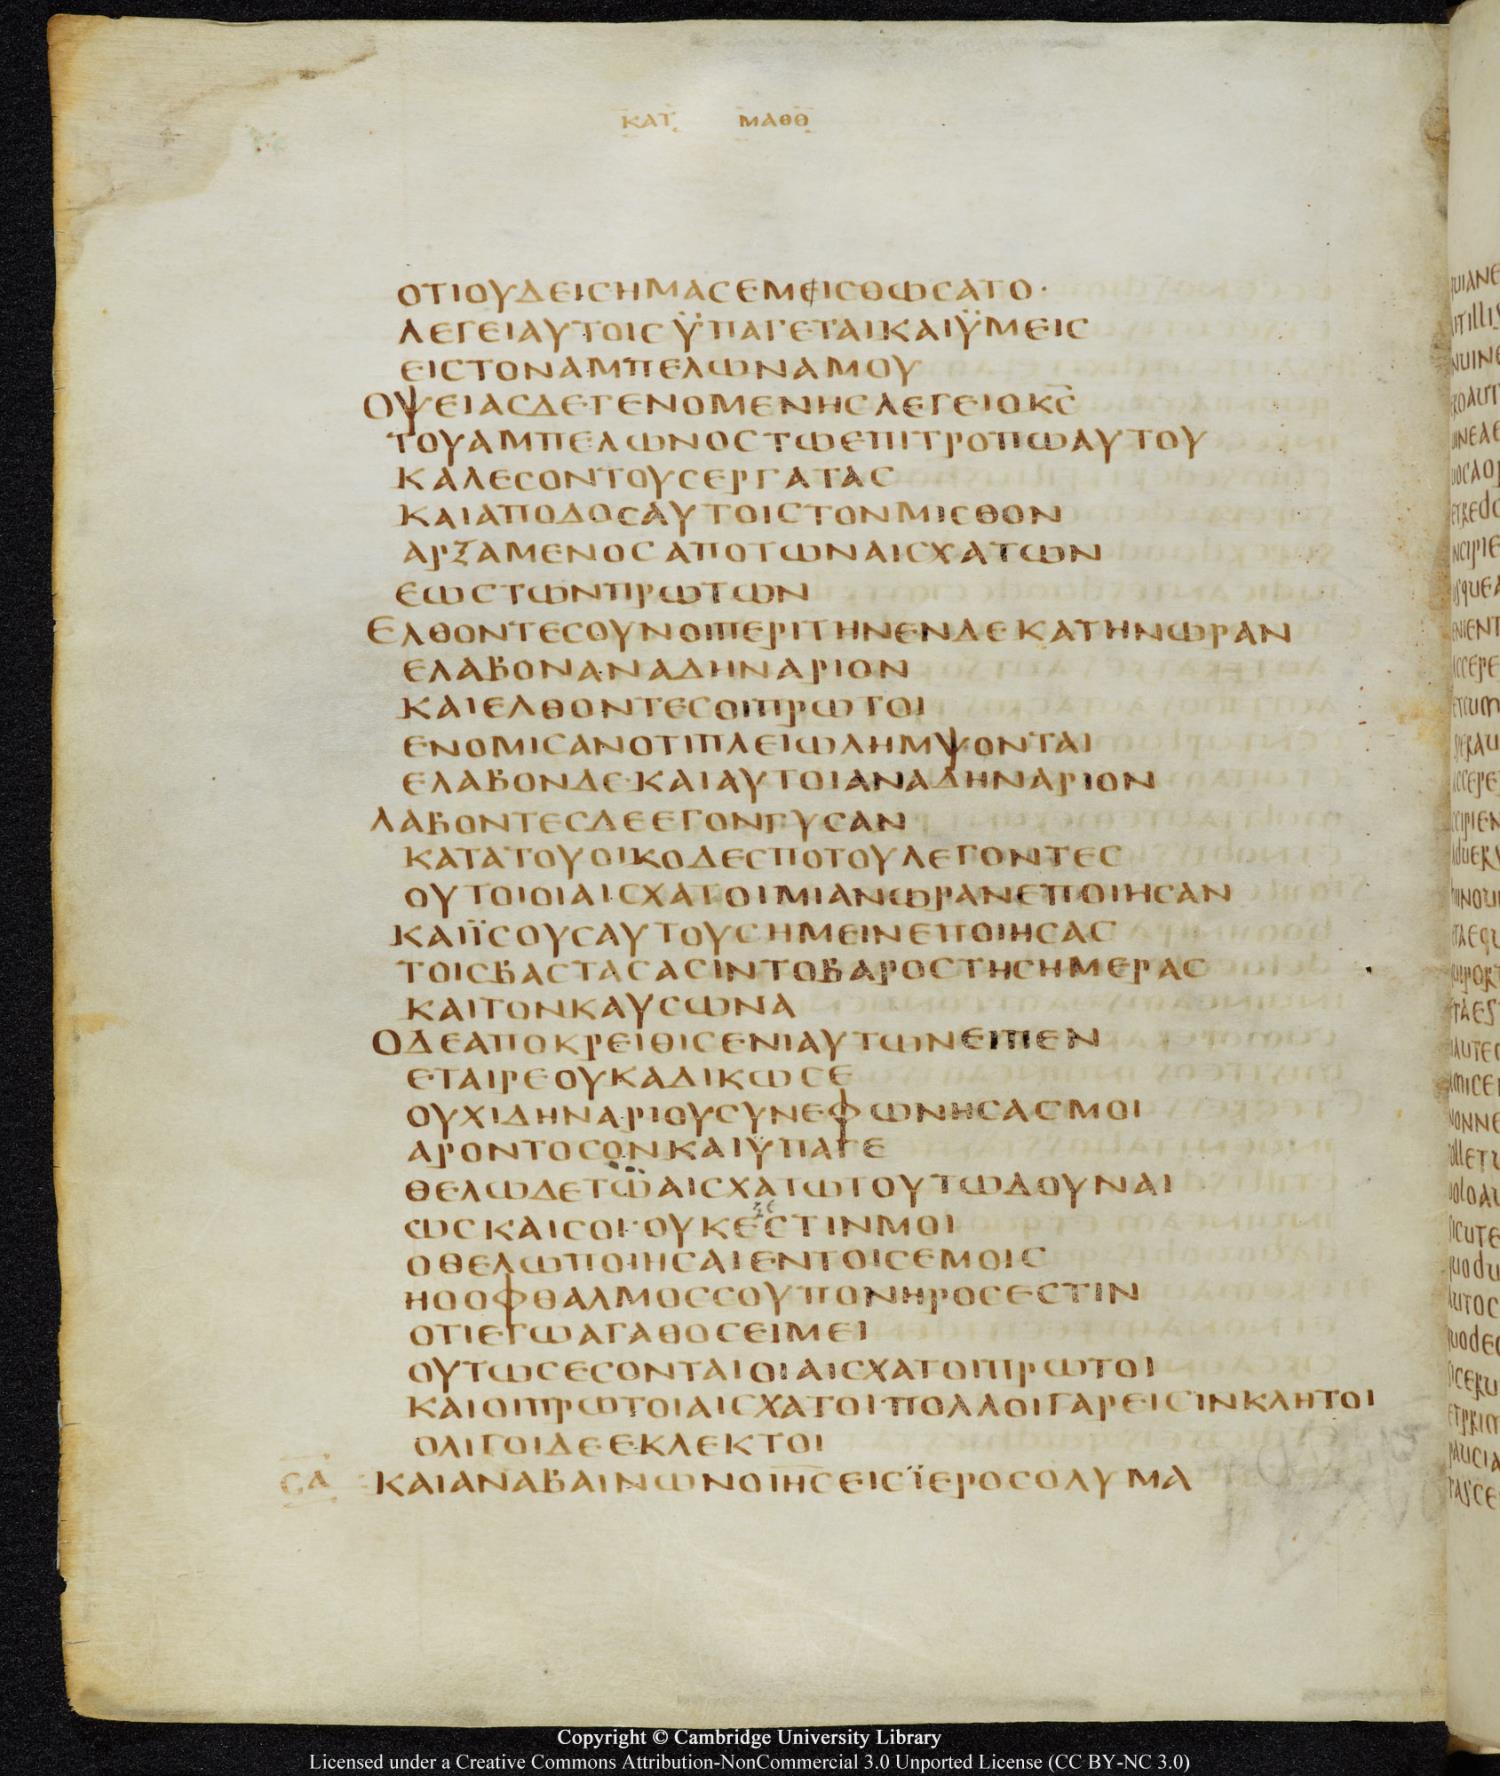 ΚΑΤ ΜΑΘΘ
ΟΤΙΟΥΔΕΙСΗΜΑСΕΜΕΙСΘΩСΑΤΟ·
ΛΕΓΕΙΑΥΤΟΙСΫΠΑΓΕΤΑΙΚΑΙΫΜΕΙС
ΕΙСΤΟΝΑΜΠΕΛΩΝΑΜΟΥ
ΟΨΕΙΑСΔΕΓΕΝΟΜΕΝΗСΛΕΓΕΙΟΚ̅С̅
ΤΟΥΑΜΠΕΛΩΝΟСΤΩΕΠΙΤΡΟΠΩΑΥΤΟΥ
ΚΑΛΕСΟΝΤΟΥСΕΡΓΑΤΑС
ΚΑΙΑΠΟΔΟСΑΥΤΟΙСΤΟΝΜΙСΘΟΝ
ΑΡΞΑΜΕΝΟСΑΠΟΤΩΝΑΙСΧΑΤΩΝ
ΕΩСΤΩΝΠΡΩΤΩΝ
ΕΛΘΟΝΤΕСΟΥΝΟΙΠΕΡΙΤΗΝΕΝΔΕΚΑΤΗΝΩΡΑΝ
ΕΛΑΒΟΝΑΝΑΔΗΝΑΡΙΟΝ
ΚΑΙΕΛΘΟΝΤΕСΟΙΠΡΩΤΟΙ
ΕΝΟΜΙСΑΝΟΤΙΠΛΕΙΩΛΗΜΨΟΝΤΑΙ
ΕΛΑΒΟΝΔΕ·ΚΑΙΑΥΤΟΙΑΝΑΔΗΝΑΡΙΟΝ
ΛΑΒΟΝΤΕСΔΕΕΓΟΝΓΥСΑΝ
ΚΑΤΑΤΟΥΟΙΚΟΔΕСΠΟΤΟΥΛΕΓΟΝΤΕС
ΟΥΤΟΙΟΙΑΙСΧΑΤΟΙΜΙΑΝΩΡΑΝΕΠΟΙΗСΑΝ
ΚΑΙΪСΟΥСΑΥΤΟΥСΗΜΕΙΝΕΠΟΙΗСΑС
ΤΟΙСΒΑСΤΑСΑСΙΝΤΟΒΑΡΟСΤΗСΗΜΕΡΑС
ΚΑΙΤΟΝΚΑΥСΩΝΑ
ΟΔΕΑΠΟΚΡΕΙΘΙСΕΝΙΑΥΤΩΝΕΙΠΕΝ
ΕΤΑΙΡΕΟΥΚΑΔΙΚΩСΕ
ΟΥΧΙΔΗΝΑΡΙΟΥСΥΝΕΦΩΝΗСΑСΜΟΙ
ΑΡΟΝΤΟСΟΝΚΑΙΫΠΑΓΕ
ΘΕΛΩΔΕΤΩΑΙСΧΑΤΩΤΟΥΤΩΔΟΥΝΑΙ
ΩСΚΑΙСΟΙ·ΟΥΚΕСΤΙΝΜΟΙ
ΟΘΕΛΩΠΟΙΗСΑΙΕΝΤΟΙСΕΜΟΙС
ΗΟΟΦΘΑΛΜΟССΟΥΠΟΝΗΡΟСΕСΤΙΝ
ΟΤΙΕΓΩΑΓΑΘΟСΕΙΜΕΙ
ΟΥΤΩСΕСΟΝΤΑΙΟΙΑΙСΧΑΤΟΙΠΡΩΤΟΙ
ΚΑΙΟΙΠΡΩΤΟΙΑΙСΧΑΤΟΙ·ΠΟΛΛΟΙΓΑΡΕΙСΙΝΚΛΗΤΟΙ
ΟΛΙΓΟΙΔΕΕΚΛΕΚΤΟΙ
СΑ ΚΑΙΑΝΑΒΑΙΝΩΝΟΙ̅Η̅С̅ΕΙСΪΕΡΟСΟΛΥΜΑ
Copyright © Cambridge University Library
Licensed under a Creative Commons Attribution-NonCommercial 3.0 Unported License (CC BY-NC 3.0)